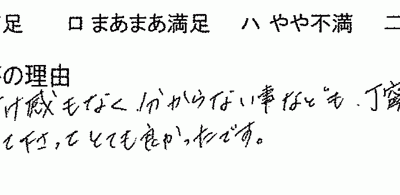 足 ロ まあまあ満足 ハ やや不満 ニ
の理由
け感もなく、分からない事なども、丁寧
て下さってとても良かったです。